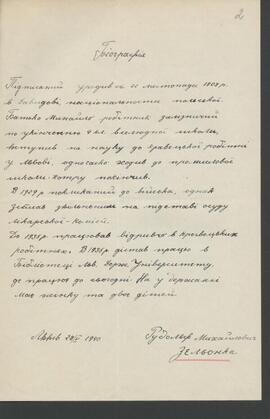 2
Біографія
Підписаний уродився 22 листопада 1908 р.
в Давидові, національности польської.
Батько Михайло робітник залізничий
по укінченню 4 кл. вселюдної школи,
вступив на науку до кравецької робітні
у Львові, одночасно ходив до промислової
школи котру покінчив.
В 1929 р. покликаний до війська, однак
зістав звільнений на підставі осуду
лікарської комісії.
До 1935 р. працював відривно в кравецьких
робітнях. В 1935 р дістав працю в
Бібліотеці Льв. Держ. Університету,
де працює до сьогодні На удержанні
має жінку та двоє дітей.
Львів 1940
Рудольф Михайлович
Зельонка